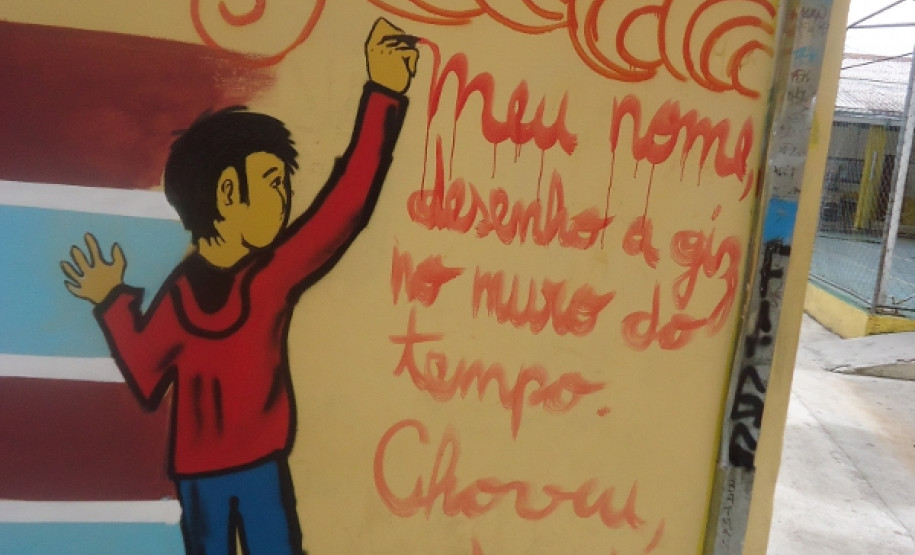 Meu nome,
desenho a giz
no muro do
tempo.
Choveu,